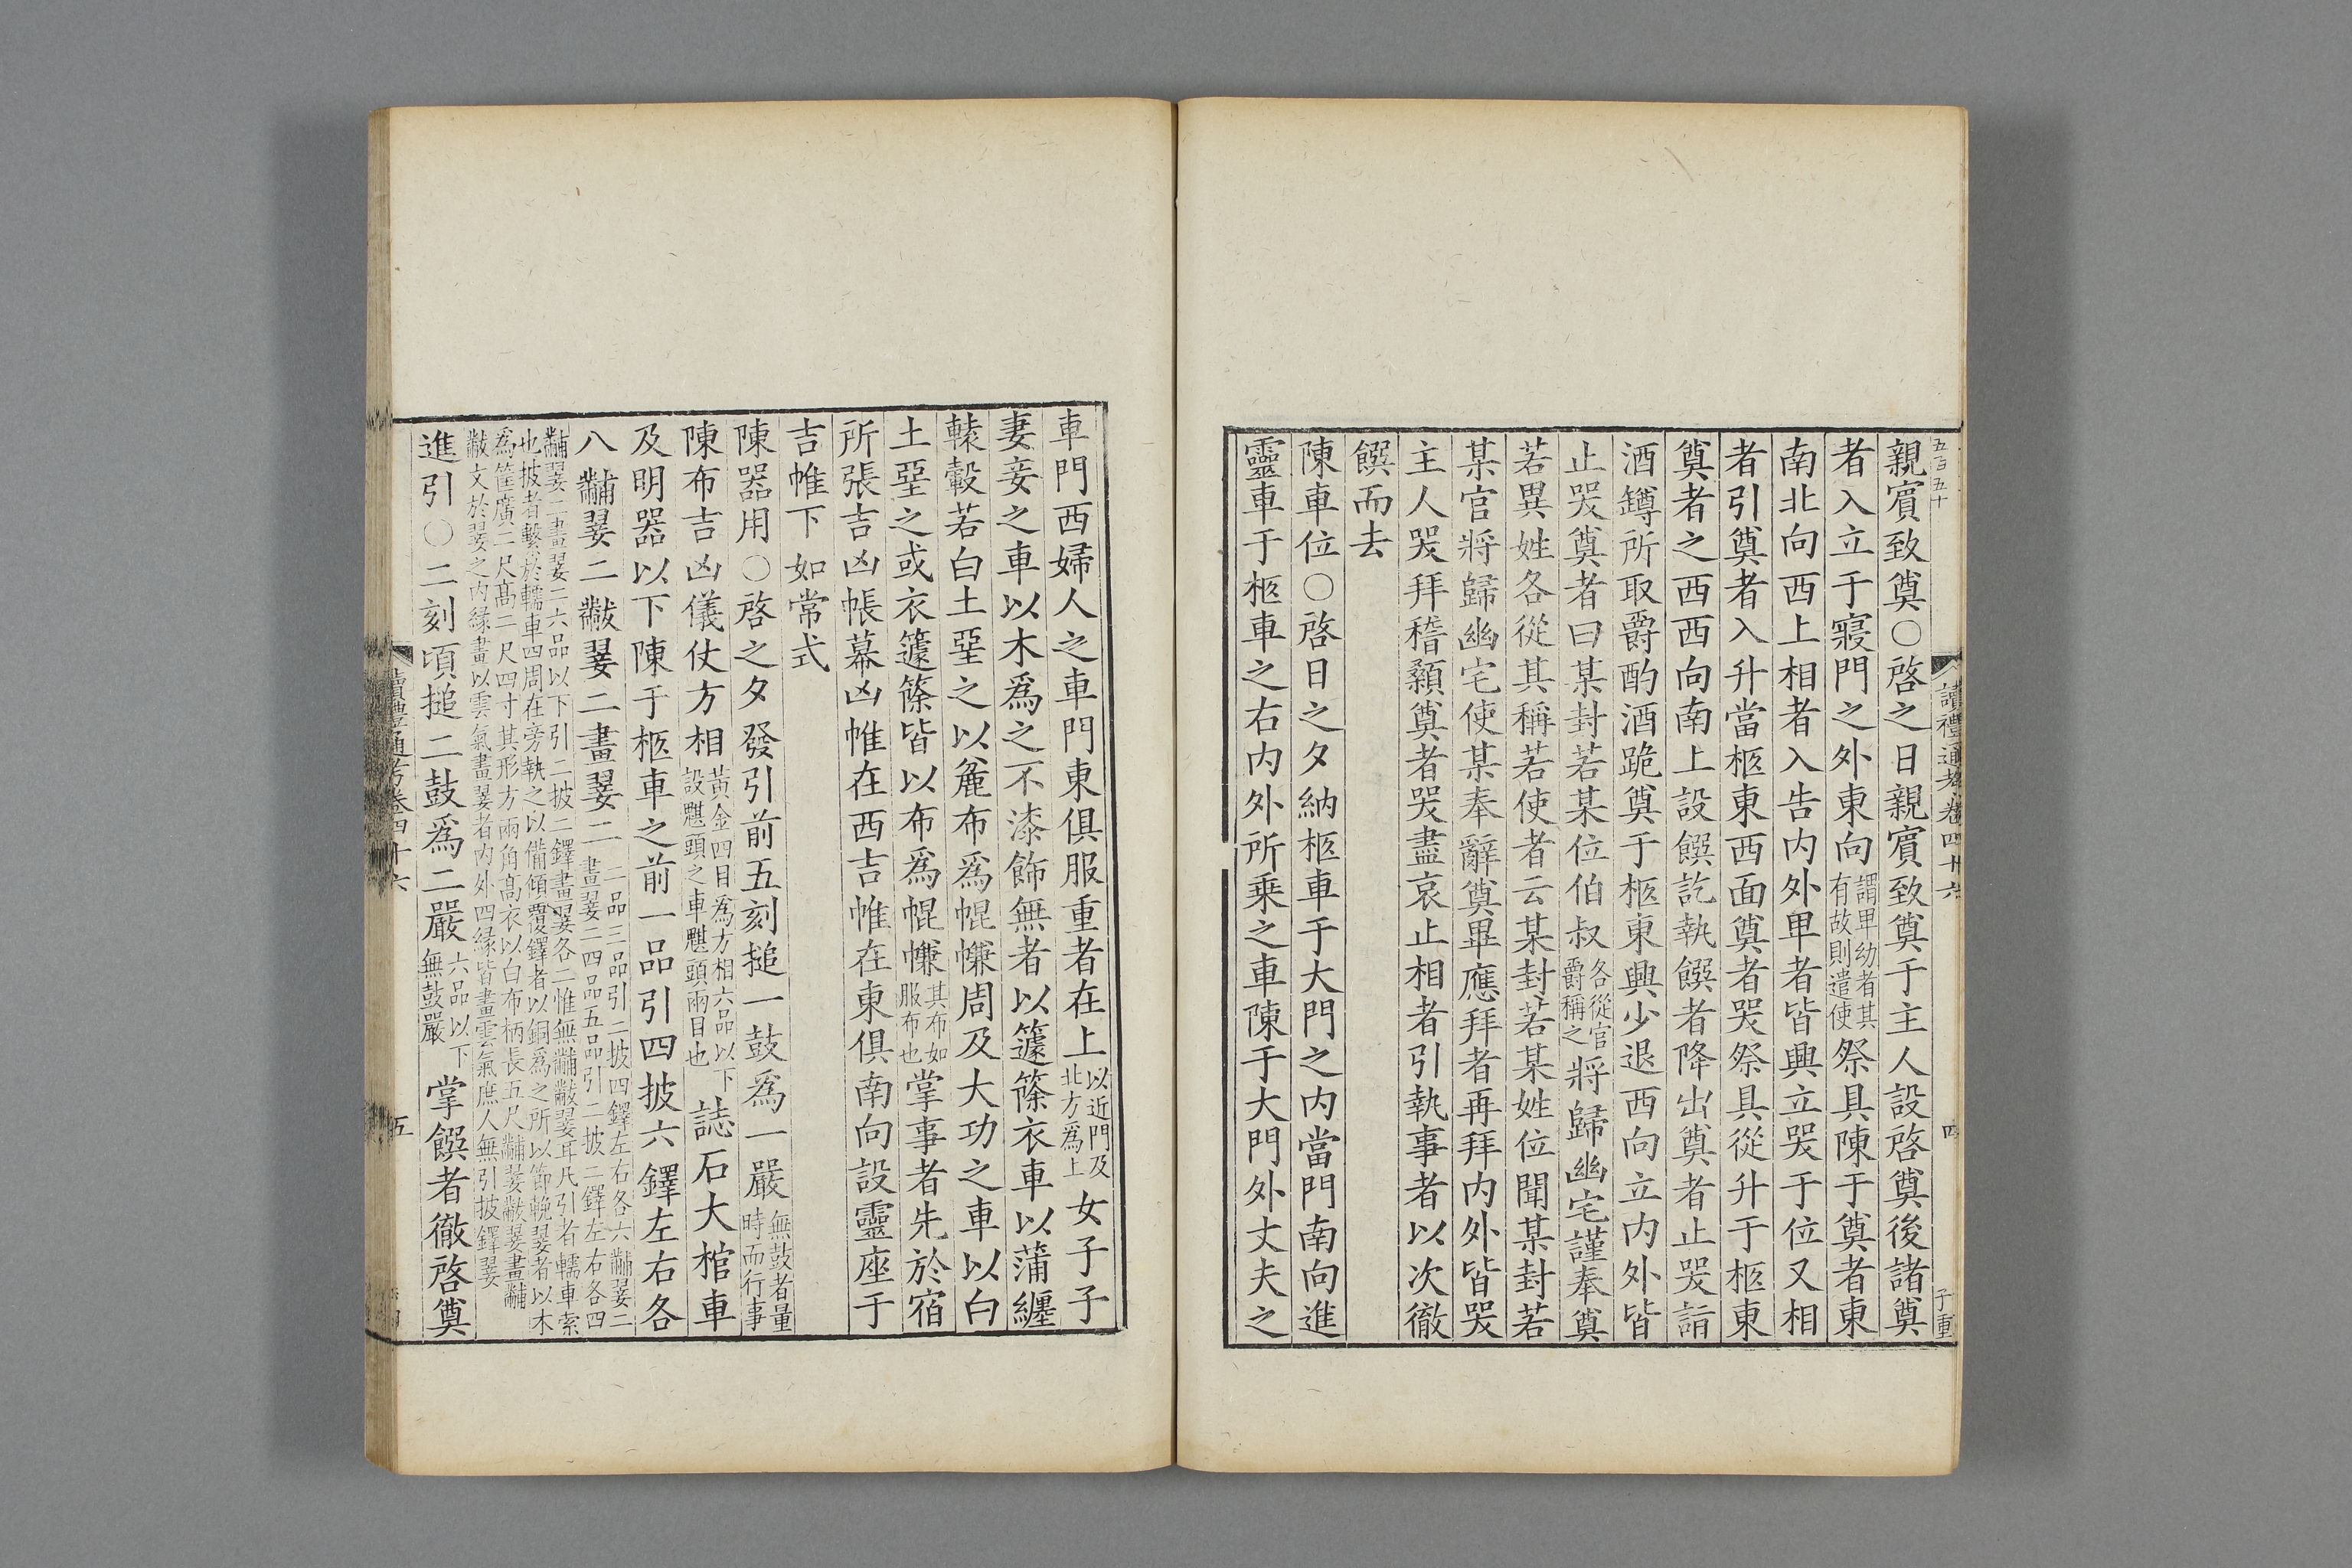 五百五十
讀禮通考卷四十六
四
子重
親賔致奠○啓之日親賔致奠于主人設啓奠後諸奠
者入立于寢門之外東向謂卑幼者其有故則遣使祭具陳于奠者東
南北向西上相者入告内外卑者皆興立哭于位又相
者引奠者入升當柩東西面奠者哭祭具從升于柩東
奠者之西西向南上設饌訖執饌者降出奠者止哭詣
酒罇所取爵酌酒跪奠于柩東興少退西向立内外皆
止哭奠者曰某封若某位伯叔各從官爵稱之將歸幽宅謹奉奠
若異姓各從其稱若使者云某封若某姓位聞某封若
某官將歸幽宅使某奉辭奠畢應拜者再拜内外皆哭
主人哭拜稽顙奠者哭盡哀止相者引執事者以次徹
饌而去
陳車位○啓日之夕納柩車于大門之内當門南向進
靈車于柩車之右内外所乗之車陳于大門外丈夫之
車門西婦人之車門東俱服重者在上以近門及北方爲上女子子
妻妾之車以木爲之不漆飾無者以籧篨衣車以蒲纏
轅轂若白土堊之以麄布爲幌㡘周及大功之車以白
土堊之或衣籧篨皆以布爲幌㡘其布如服布也掌事者先於宿
所張吉凶帳幕凶帷在西吉帷在東俱南向設靈座于
吉帷下如常式
陳器用○啓之夕發引前五刻搥一鼓爲一嚴無鼓者量時而行事
陳布吉凶儀仗方相黃金四目爲方相六品以下設魌頭之車魌頭兩目也誌石大棺車
及明器以下陳于柩車之前一品引四披六鐸左右各
八黼翣二黻翣二畫翣二二品三品引二披四鐸左右各六黼翣二畫翣二四品五品引二披二鐸左右各四
黼翣二畫翣二六品以下引二披二鐸畫翣各二惟無黼黻翣耳凡引者轜車索也披者繫於轜車四周在旁執之以備傾覆鐸者以銅爲之所以節輓翣者以木
爲筐廣二尺髙二尺四寸其形方兩角髙衣以白布柄長五尺黼翣黻翣畫黼黻文於翣之内縁畫以雲氣畫翣者内外四縁皆畫雲氣庶人無引披鐸翣
進引○二刻頃搥二鼓爲二嚴六品以下無鼓嚴掌饌者徹啓奠
讀禮通考卷四十六
五